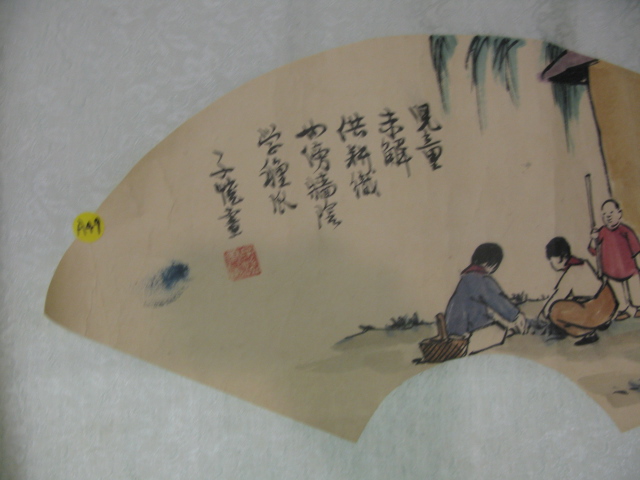 児童
未解
供耕織
也傍牆陰
学種瓜
子愷畫
A49